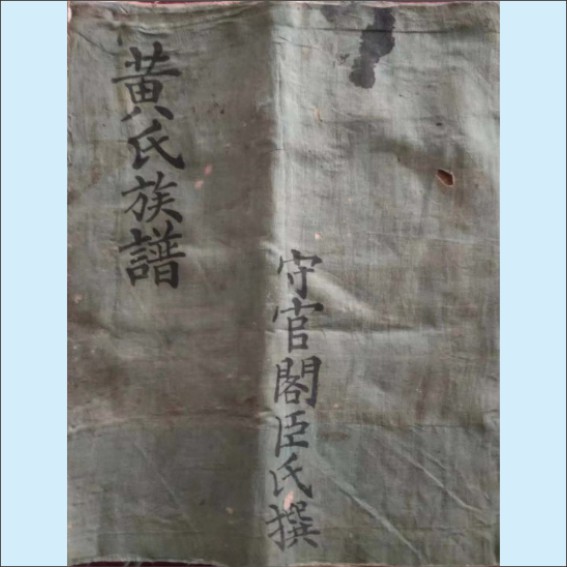 黃氏族譜
守官閣臣氏撰